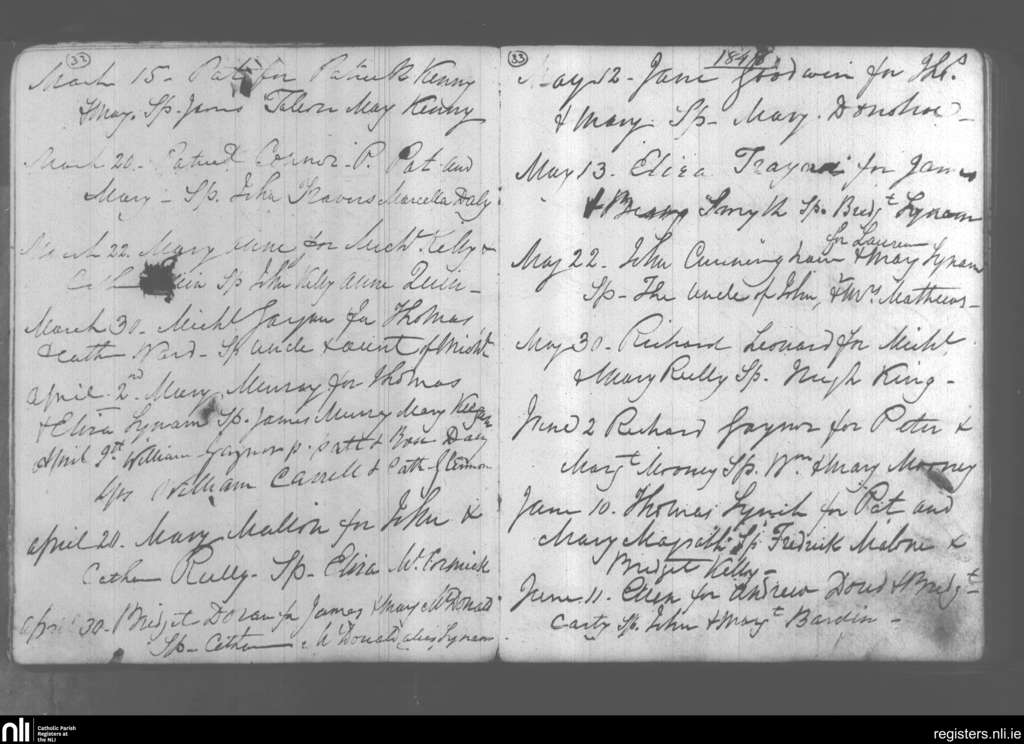 32
March 15 - Pat for Patrick Kenny
& Mary. Sp. James Mary Kenny
March 20 - Patrick Connor - P. Pat and
Mary - Sp. John Travers Marcella Daly
March 22. Mary anne for Michl Kelly &
Cath Sp John Kelly anne Quin -
March 30 - Michl for Thomas
& Cath Ward - Sp uncle & aunt of Michl
april 2nd Mary Murray for Thomas
& Eliza Lynam Sp. James Murry Mary
april 9th William Gaynor p. Patt & Rose Daly
Sps William Carrell & Cath Glennon
april 20. Mary Mallon for John &
Cathern Reilly - Sp - Eliza Mc Cormick
april 30. Bridget Doran for James & Mary McDonald
Sp - Cathern McDonald alias Lynam
33
1848
May 12 - Jane Goodwin for Ths.
& Mary. Sp - Mary. Donohoe -
May 13. Eliza for James
& Smyth Sp. Bridgt Lynam
for Lauren
May 22. John Cunningham & Mary Lynam
Sp - The uncle of John, & Mrs Mathews -
May 30. Richard Leonard for Michl
& Mary Reilly Sp. Hugh King -
June 2 Richard Gaynor for Peter &
Margt Mooney Sp. Wm & Mary Mooney
June 10. Thomas Lynch for Pat and
Mary Magrath Sp Fredrick Malone &
Bridget Kelly -
June 11. Ellen for Andrew Doud & Bridgt
Carty Sp. John & Margt Bardin -
nli
Catholic Parish
Registers at
the NLI
registers.nli.ie